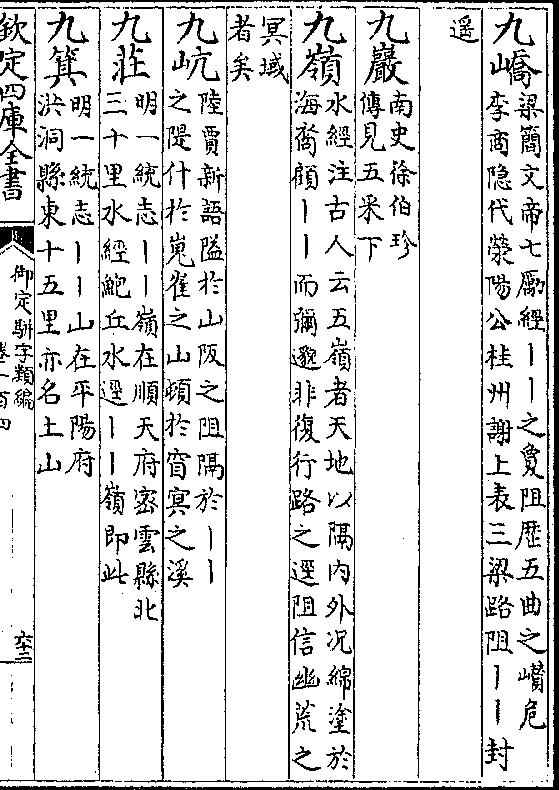 九嶠梁簡文帝七勵經丨丨之敻阻歷五曲之巑危
李商隐代滎陽公桂州謝上表三梁路阻丨丨封
遥
九巖南史徐伯珍
傳見五采下
九嶺水經注古人云五嶺者天地以隔内外况綿塗於
海裔顧丨丨而彌邈非復行路之逕阻信幽荒之
冥域
者矣
九岏陸賈新語隘於山阪之阻隔於丨丨
之隄仆於嵬崔之山頓於窅冥之溪
九莊明一統志丨丨嶺在順天府密雲縣北
三十里水經鮑丘水逕丨丨嶺即此
九箕明一統志丨丨山在平陽府
洪洞縣東十五里亦名土山
欽定四庫全書
御定駢字類編
卷一百四
六十二